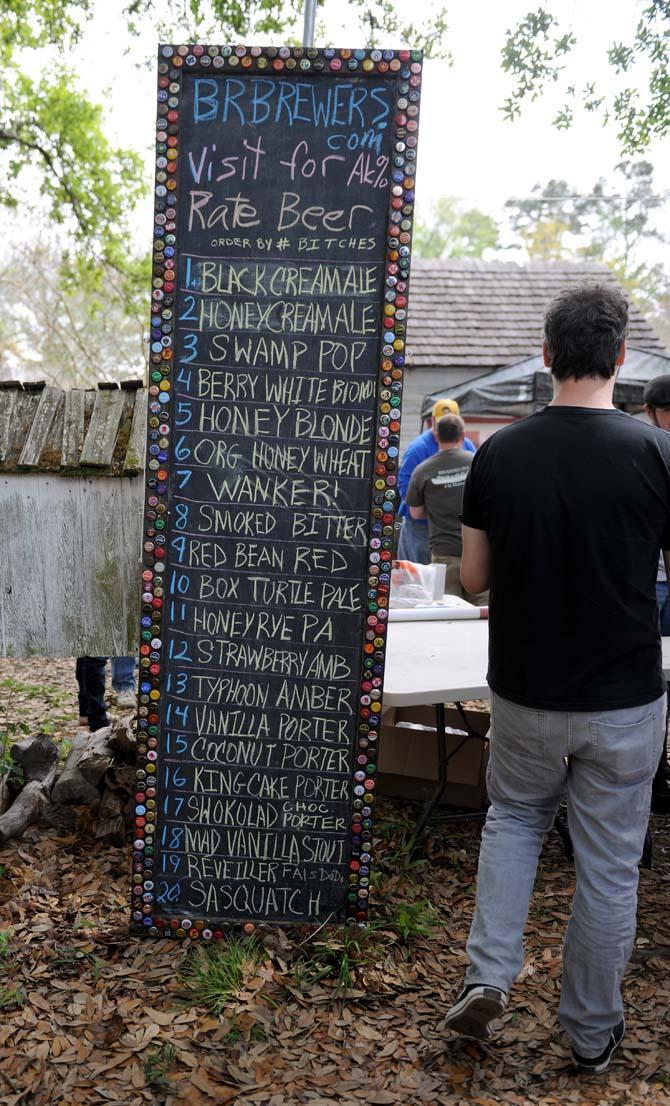 BRBREWERS.
com
Visit for Alc%
Rate Beer
ORDER BY # BITCHES
1 BLACK CREAM ALE
2 HONEY CREAM ALE
3 SWAMP POP
4 BERRY WHITE BLOND
5 HONEY BLONDE
6 ORG HONEY WHEAT
7 WANKER!
8 SMOKED BITTER
9 RED BEAN RED
10 BOX TURTLE PALE
11 HONEY RYE PA
12 STRAWBERRY AMB
13 TYPHOON AMBER
14 VANILLA PORTER
15 COCONUT PORTER
16 KING CAKE PORTER
17 SWOKOLAD CHOC PORTER
18 MAD VANILLA STOUT
19 REVEILLER FAIS DODO
20 SASQUATCH